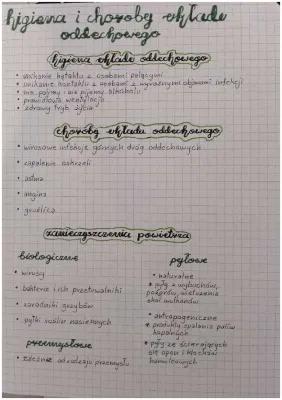 higiena i choroby układu
oddechowego
higiena układu oddechowego
• unikanie kontaktu z osobami palącymi
• unikanie kontaktu z osobami z wyraźnymi objawami infekcji
• nie palimy i nie pijemy alkoholu
• prawidłowa wentylacja
• zdrowy tryb życia
choroby układu oddechowego
• wirusowe infekcje górnych dróg oddechowych
• zapalenie oskrzeli
• astma
• angina
• gruźlica
zanieczyszczenia powietrza
biologiczne
• wirusy
• bakterie i ich przetrwalniki
• zarodniki grzybów
• pyłki roślin nasiennych
przemysłowe
• zależnie od rodzaju przemysłu
pyłowe
• naturalne
* pyły z wybuchów,
pożarów, wietrzenia
skał wulkanów
• antropogeniczne
* produkty spalania paliw
kopalnych
* pyły ze ścierających
się opon i klocków
hamulcowych